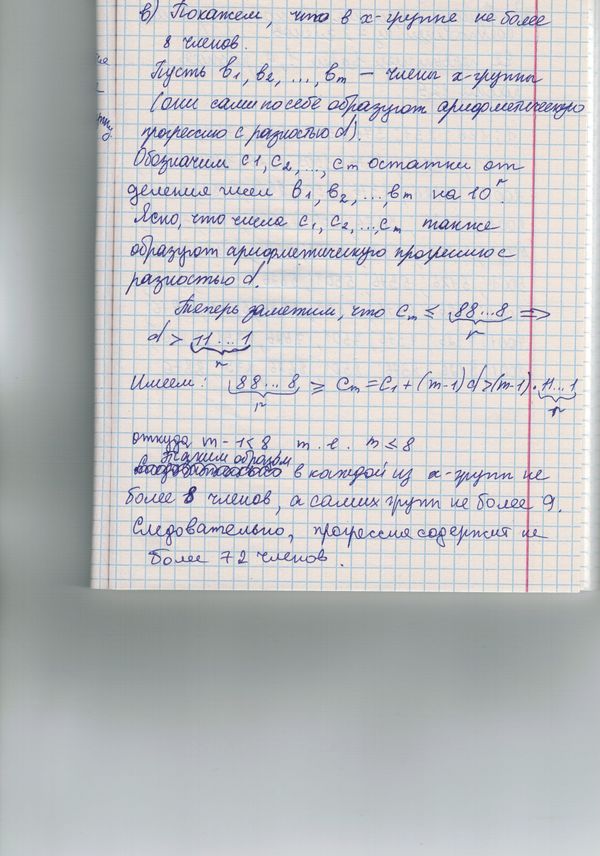 в) Покажем, что в x-группе не более
8 членов.
Пусть b1, b2, ..., bm — члены x-группы
(они сами по себе образуют арифметическую
прогрессию с разностью d).
Обозначим c1, c2, ..., cm остатки от
деления чисел b1, b2, ..., bm на 10^r.
Ясно, что числа c1, c2, ..., cm также
образуют арифметическую прогрессию с
разностью d.
Теперь заметим, что cm ≤ 88...8 =>
r
d > 11...1
r
Имеем: 88...8 ≥ cm = c1 + (m-1)d > (m-1)·11...1
r r
откуда m-1<8 т.е. m≤8
Таким образом
в каждой из x-групп не
более 8 членов, а самих групп не более 9.
Следовательно, прогрессия содержит не
более 72 членов.